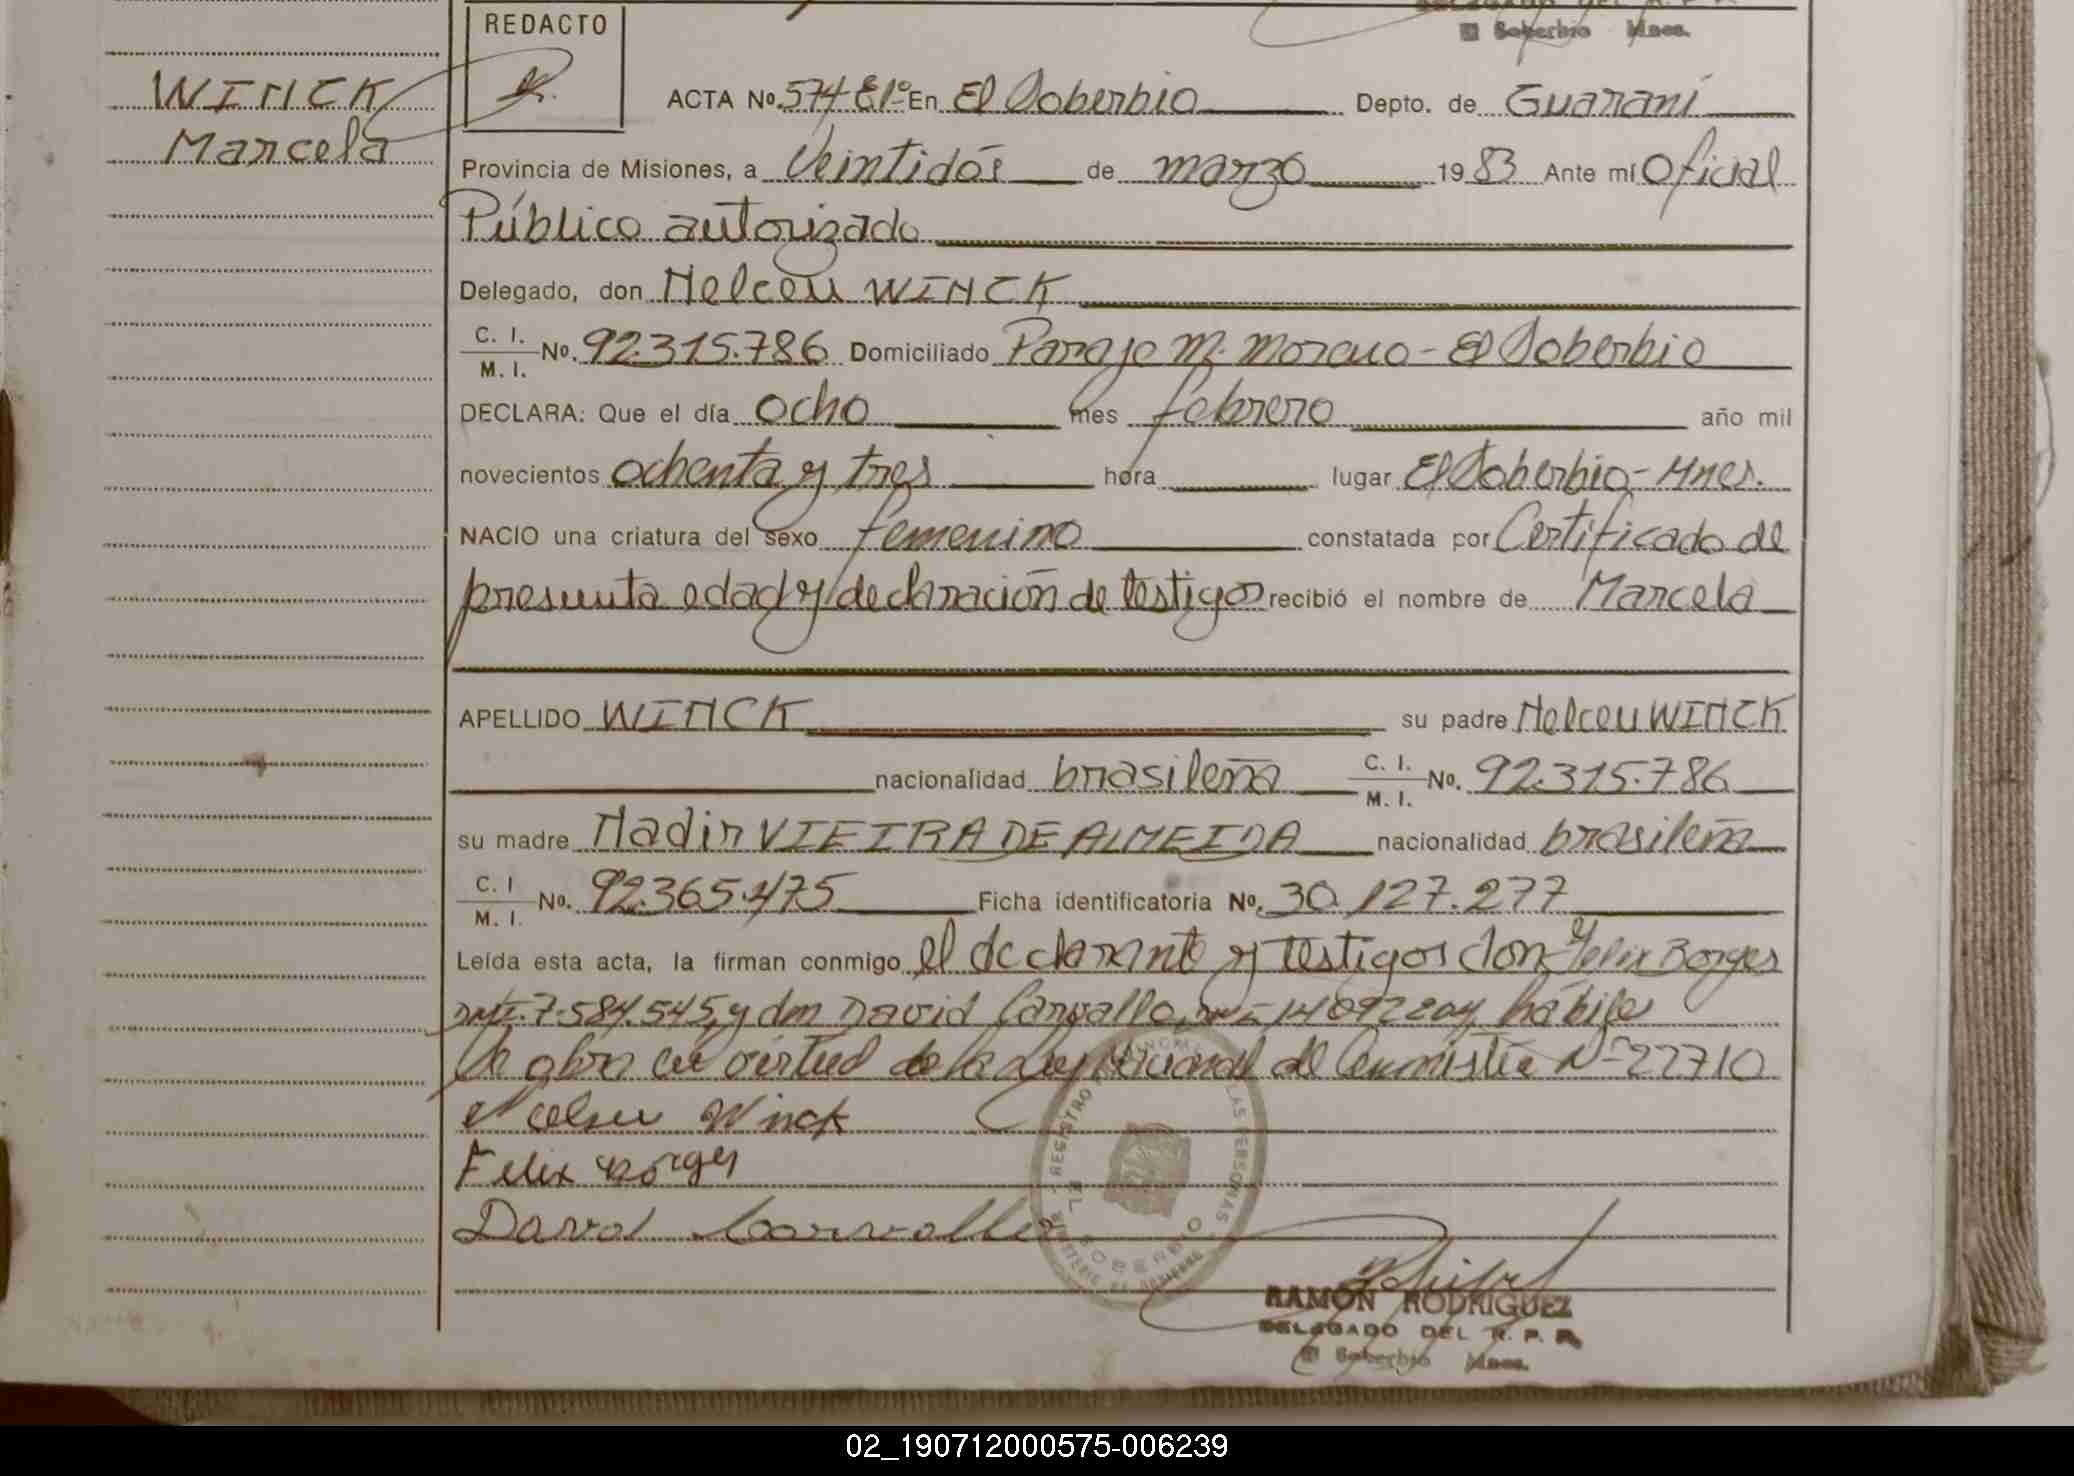 REDACTO
El Soberbio Mnes.
WINCK
Marcela
ACTA No. 574 El 1º En El Soberbio Depto. de Guaraní
Provincia de Misiones, a Veintidós de marzo 1983 Ante mí Oficial
Público autorizado
Delegado, don Nelceu WINCK
C. I. / M. I. No. 92.315.786 Domiciliado Paraje M. Moreno - El Soberbio
DECLARA: Que el día ocho mes febrero año mil
novecientos ochenta y tres hora lugar El Soberbio - Mnes.
NACIO una criatura del sexo femenino constatada por Certificado de
presunta edad y declaración de testigos recibió el nombre de Marcela
APELLIDO WINCK su padre Nelceu WINCK
nacionalidad brasileña C. I. / M. I. No. 92.315.786
su madre Nadir VIEIRA DE ALMEIDA nacionalidad brasileña
C. I / M. I. No. 92.365.475 Ficha identificatoria No. 30.127.277
Leída esta acta, la firman conmigo el declarante y testigos don Felix Borges
7.584.545, y don David Carvallo, hábiles
de en virtud de la Ley Nacional de Amnistía Nº 22710
Nelseu Winck
Felix Borges
David Carvallo
REGISTRO PROVINCIAL DE LAS PERSONAS
EL SOBERBIO
RAMÓN RODRIGUEZ
DELEGADO DEL R. P. P.
El Soberbio Mnes.
02_190712000575-006239